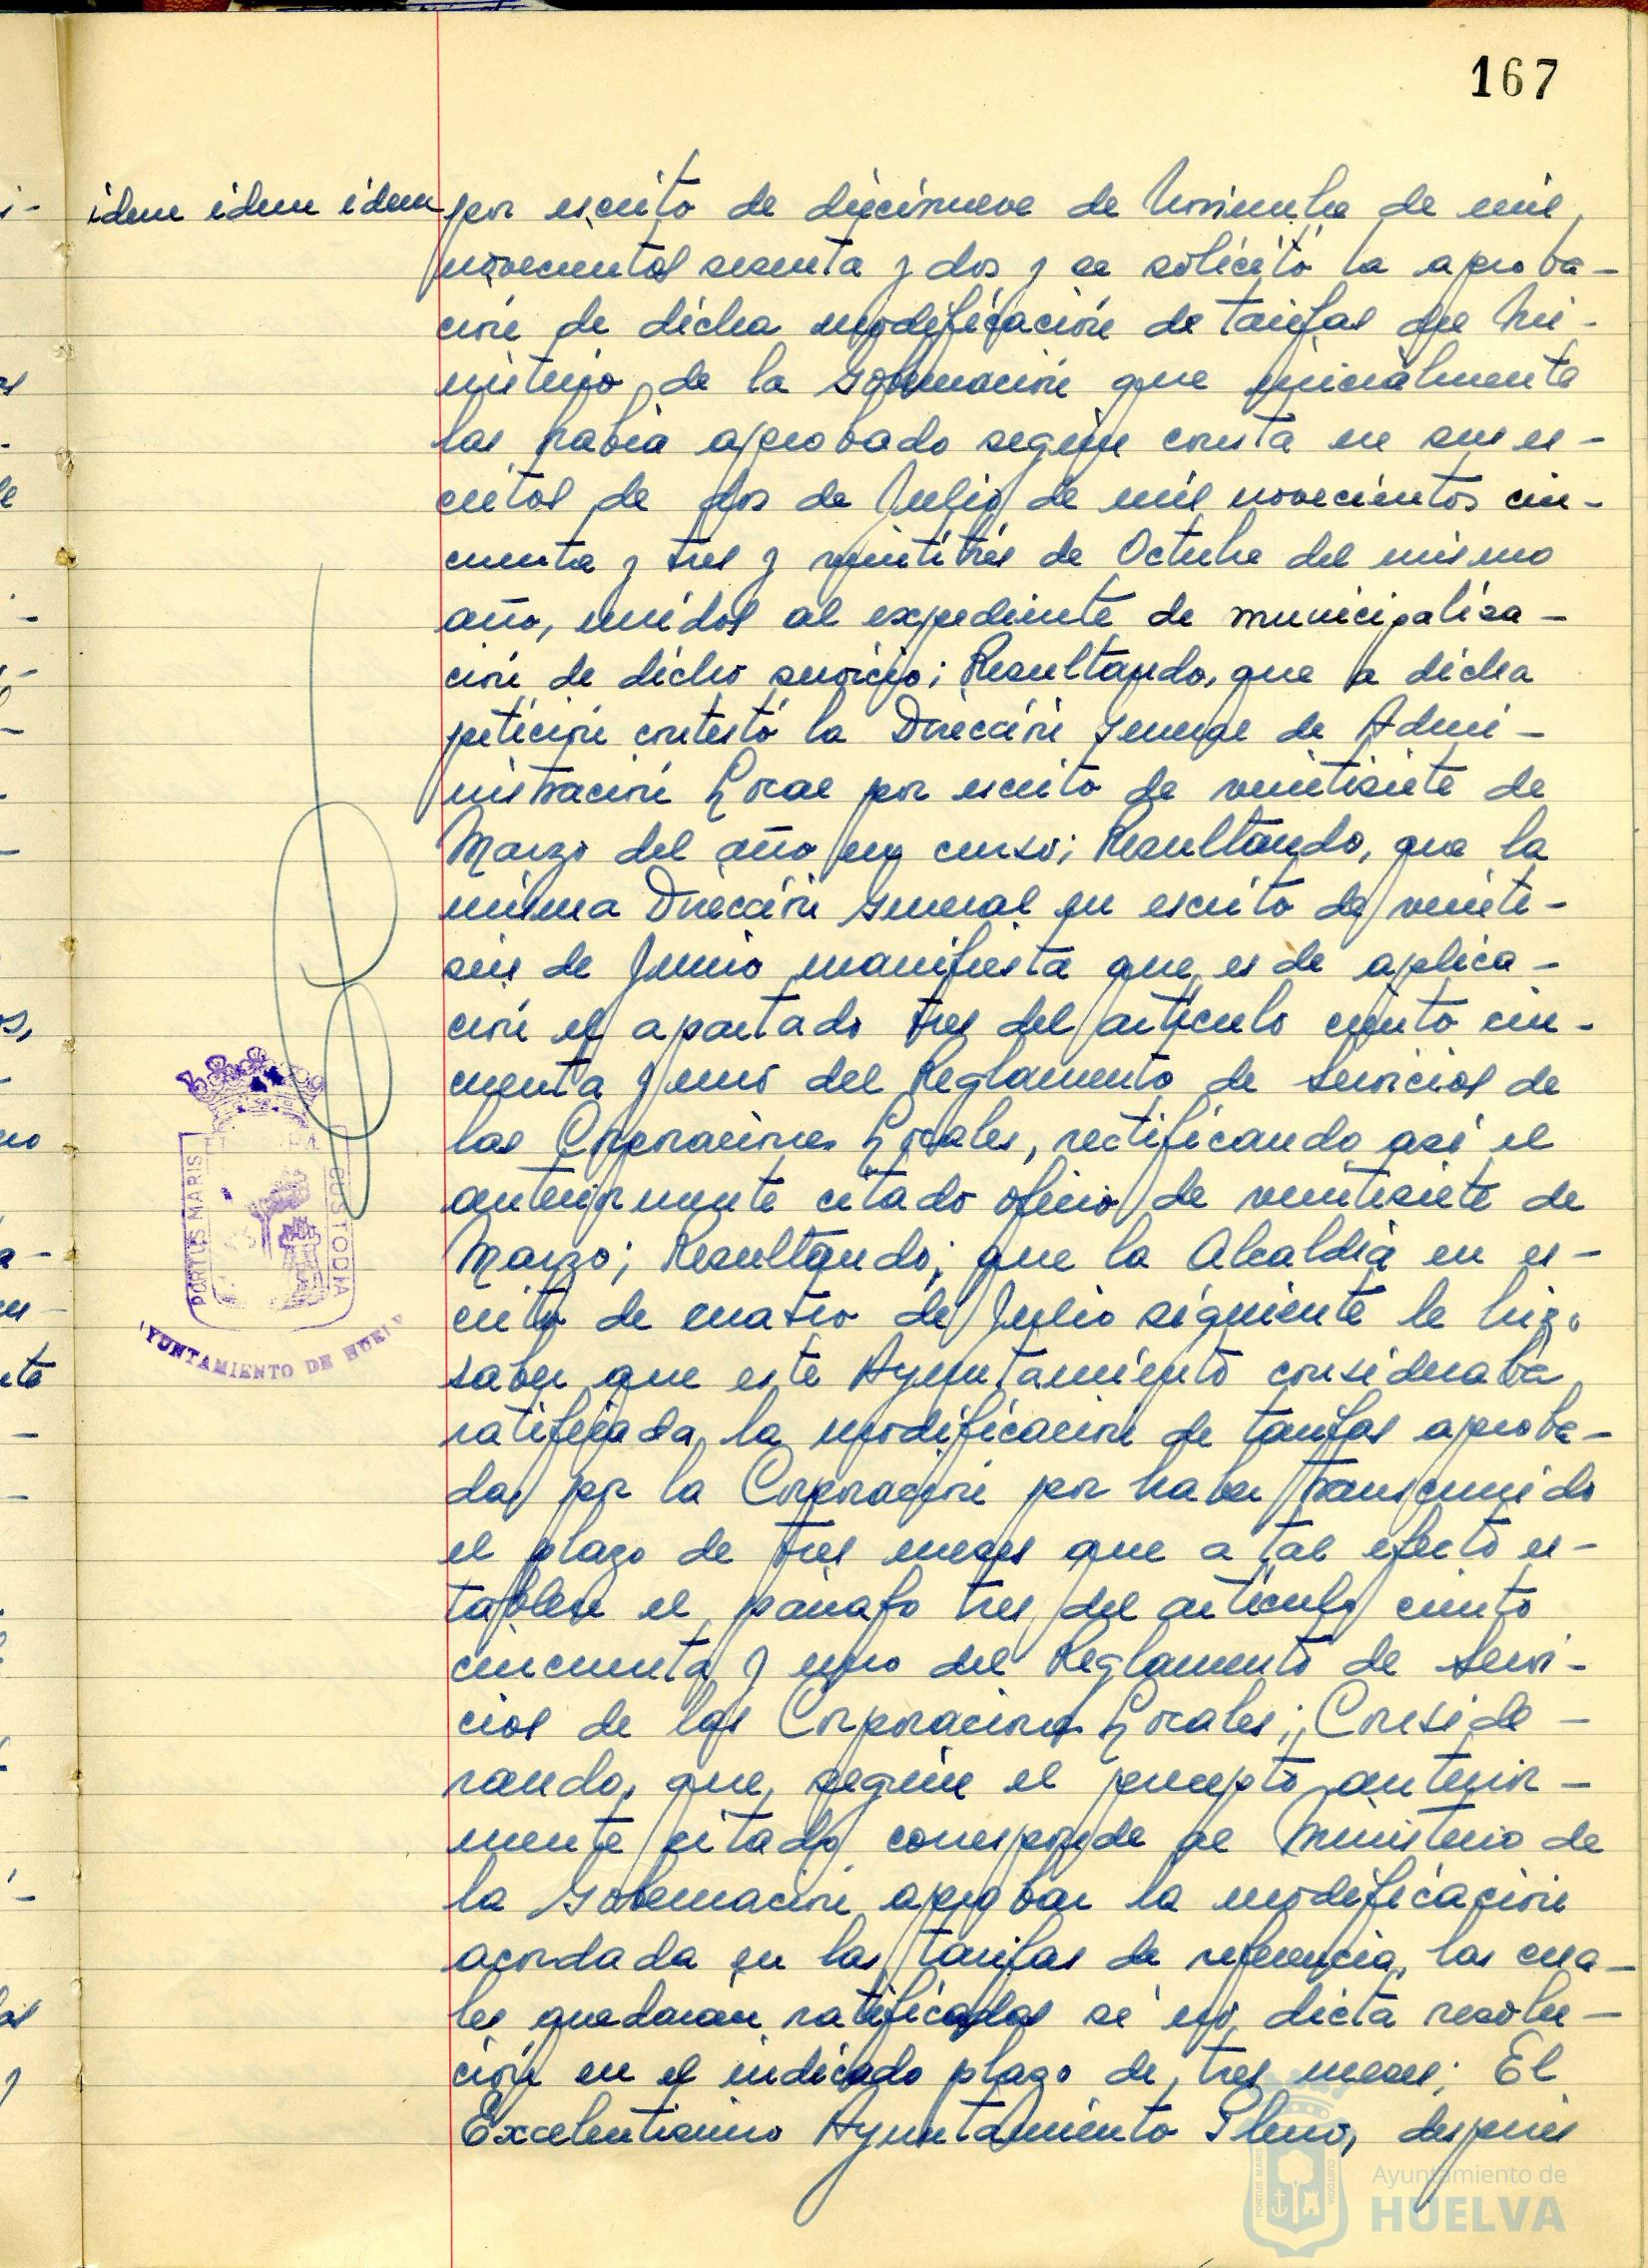 167
idem idem idem
por escrito de diecinueve de Noviembre de mil
novecientos sesenta y dos y se solicitó la aproba-
ción de dicha modificación de tarifas del Mi-
nisterio de la Gobernación que inicialmente
las había aprobado según consta en sus es-
critos de dos de Julio de mil novecientos cin-
cuenta y tres y veintitrés de Octubre del mismo
año, unidos al expediente de municipaliza-
ción de dicho servicio; Resultando, que a dicha
petición contestó la Dirección General de Admi-
nistración Local por escrito de veintisiete de
Marzo del año en curso; Resultando, que la
misma Dirección General en escrito de veinti-
seis de Junio manifiesta que es de aplica-
ción el apartado tres del artículo ciento cin-
cuenta y uno del Reglamento de Servicios de
las Corporaciones Locales, rectificando así el
anteriormente citado oficio de veintisiete de
Marzo; Resultando; que la Alcaldía en es-
crito de cuatro de Julio siguiente le hizo
saber que este Ayuntamiento consideraba
ratificada la modificación de tarifas aproba-
da por la Corporación por haber transcurrido
el plazo de tres meses que a tal efecto es-
tablece el párrafo tres del artículo ciento
cincuenta y uno del Reglamento de Servi-
cios de las Corporaciones Locales; Conside-
rando, que, según el precepto anterior-
mente citado corresponde al Ministerio de
la Gobernación aprobar la modificación
acordada en las tarifas de referencia, las cua-
les quedarán ratificadas si no dicta resolu-
ción en el indicado plazo de tres meses; El
Excelentísimo Ayuntamiento Pleno, después
PORTUS MARIS
CUSTODIA
AYUNTAMIENTO DE HUELV
Ayuntamiento de
HUELVA